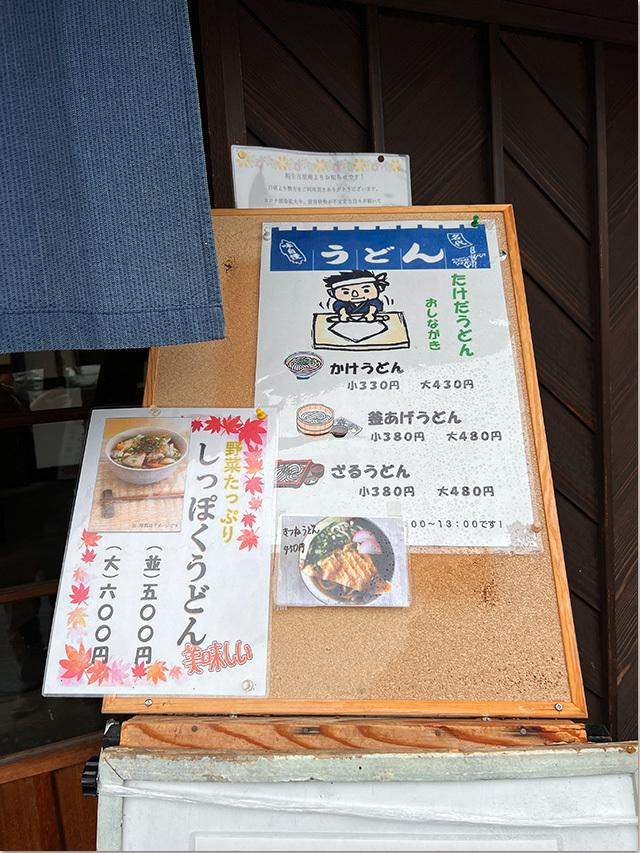 りお知らせです!
うどん
名代
たけだうどん
おしながき
かけうどん
小330円 大430円
釜あげうどん
小380円 大480円
ざるうどん
小380円 大480円
00~13:00です!
きつねうどん
450円
野菜たっぷり
しっぽくうどん
(並)五〇〇円
(大)六〇〇円
美味しい